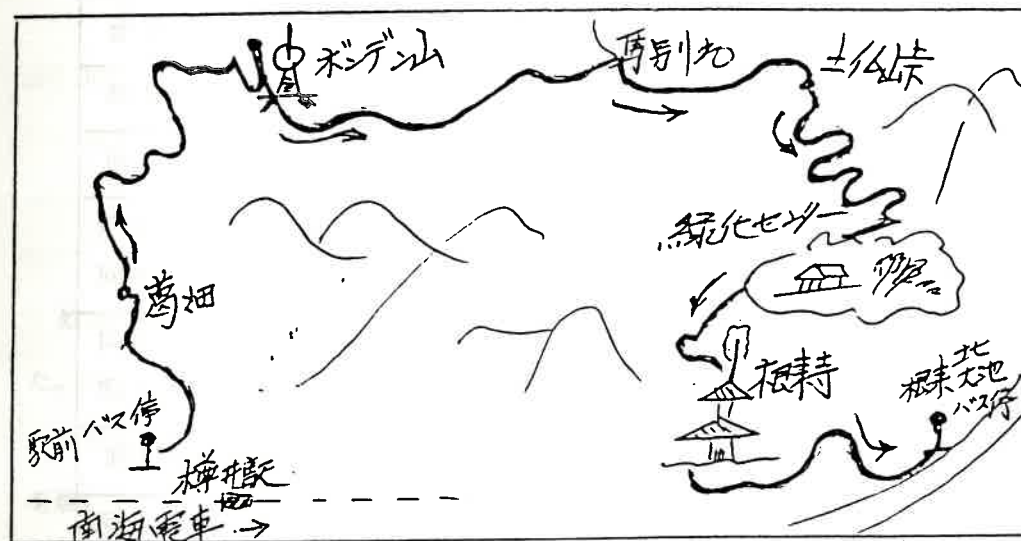 ボンデン山
馬別れ
土仏峠
緑化センター
葛畑
根来寺
根来
大池
バス停
駅前バス停
樽井駅
南海電車